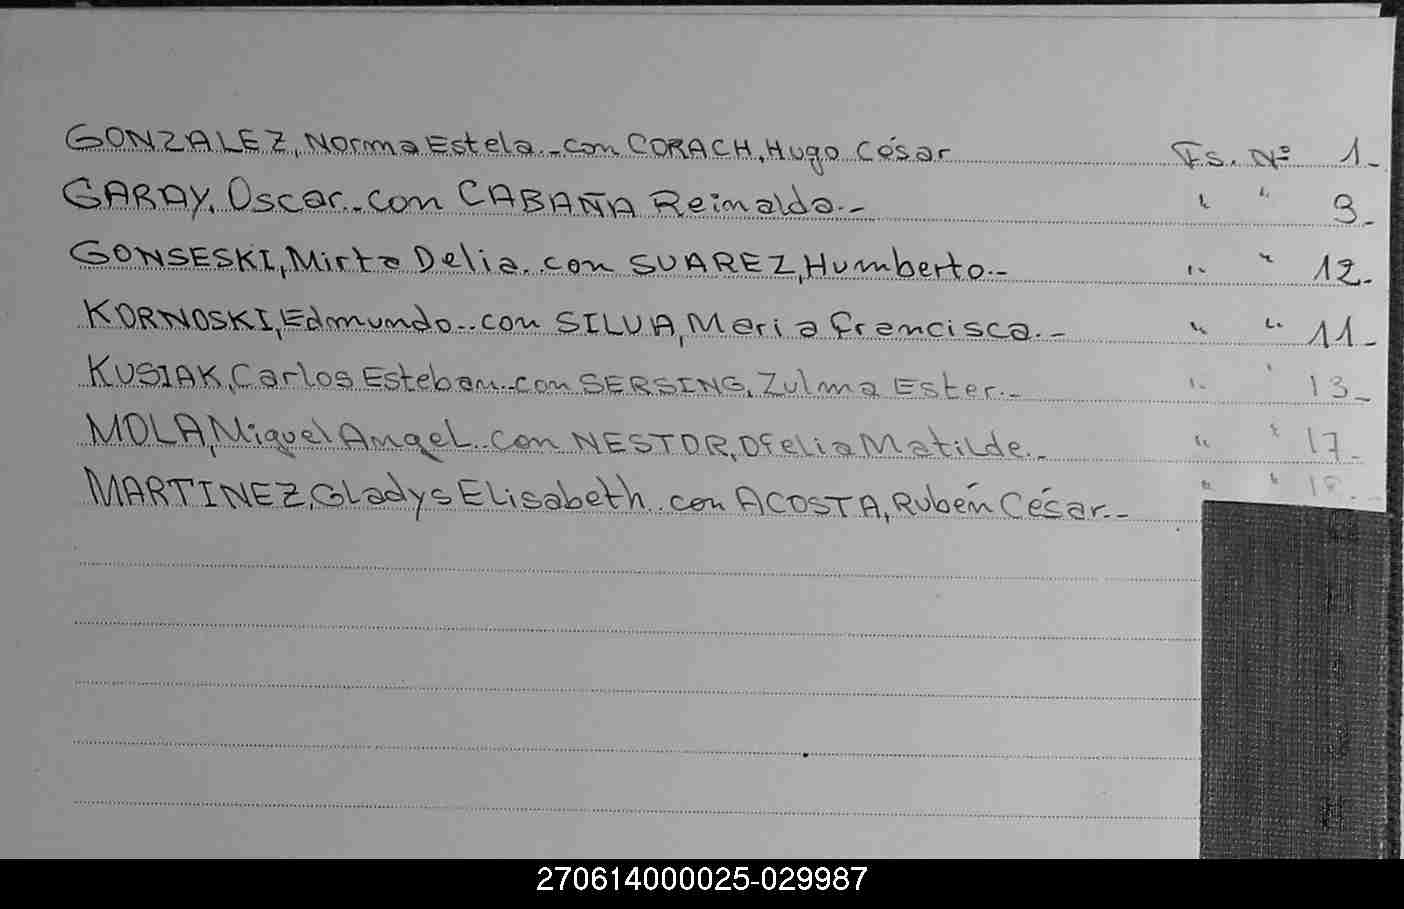 GONZALEZ, Norma Estela.-con CORACH, Hugo César Fs. Nº 1.-
GARAY, Oscar.-con CABAÑA Reinaldo.- " " 9.-
GONSESKI, Mirta Delia.-con SUAREZ, Humberto.- " " 12.-
KORNOSKI, Edmundo.-con SILVA, Maria francisca.- " " 11.-
KUSIAK, Carlos Esteban.-con SERSING, Zulma Ester.- " " 13.-
MOLA, Miguel Angel.-con NESTOR, Ofelia Matilde.- " " 17.-
MARTINEZ, Gladys Elisabeth.-con ACOSTA, Rubén César.- " " 18.-
270614000025-029987